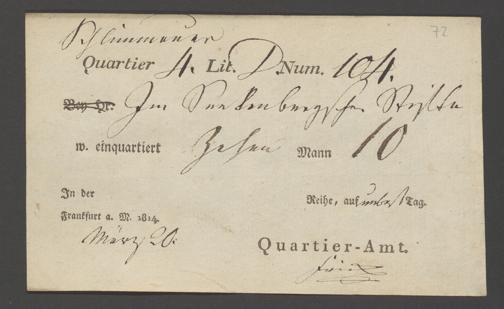 72
Quartier 4. Lit. D Num. 104.
Bey Hr. Im Senkenbergschen Stifte
w. einquartiert Zehen Mann 10
In der Reihe, auf Tag.
Frankfurt a. M. 1814.
März 20.
Quartier-Amt.